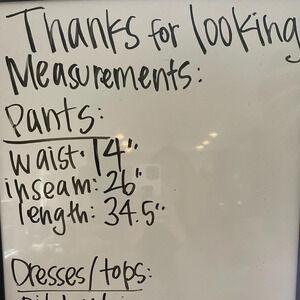 Thanks for looking
Measurements:
Pants:
waist: 14"
inseam: 26"
length: 34.5"
Dresses/tops: